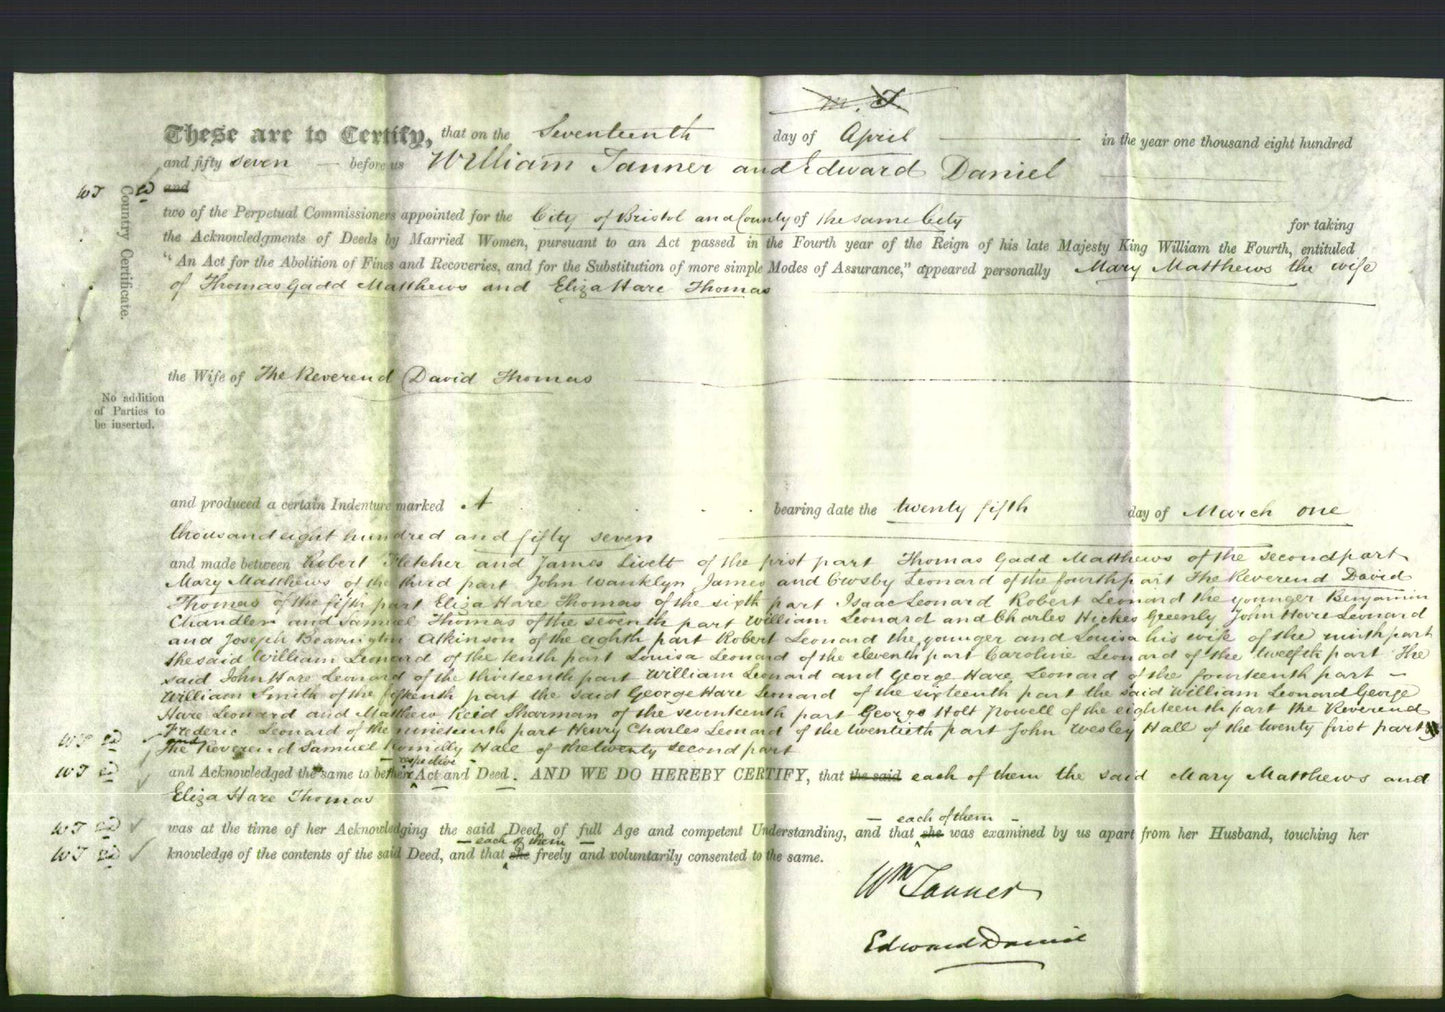 These are to Certify, that on the Seventeenth day of April in the year one thousand eight hundred
and fifty seven before us William Tanner and Edward Daniel
WT ED and
two of the Perpetual Commissioners appointed for the City of Bristol and County of the same City for taking
the Acknowledgments of Deeds by Married Women, pursuant to an Act passed in the Fourth year of the Reign of his late Majesty King William the Fourth, entituled
"An Act for the Abolition of Fines and Recoveries, and for the Substitution of more simple Modes of Assurance," appeared personally Mary Matthews the wife
of Thomas Gadd Matthews and Eliza Hare Thomas
Country Certificate.
the Wife of The Reverend David Thomas
No addition
of Parties to
be inserted.
and produced a certain Indenture marked A bearing date the twenty fifth day of March one
thousand eight hundred and fifty seven
and made between Robert Fletcher and James Livett of the first part Thomas Gadd Matthews of the second part
Mary Matthews of the third part John Wanklyn James and Crosby Leonard of the fourth part The Reverend David
Thomas of the fifth part Eliza Hare Thomas of the sixth part Isaac Leonard Robert Leonard the younger Benjamin
Chandler and Samuel Thomas of the seventh part William Leonard and Charles Hickes Greenly John Hare Leonard
and Joseph Atkinson of the eighth part Robert Leonard the younger and Louisa his wife of the ninth part
the said William Leonard of the tenth part Louisa Leonard of the eleventh part Caroline Leonard of the twelfth part The
said John Hare Leonard of the thirteenth part William Leonard and George Hare Leonard of the fourteenth part
William Smith of the fifteenth part the said George Hare Leonard of the sixteenth part the said William Leonard George
Hare Leonard and Matthew Reid Sharman of the seventeenth part George Holt Powell of the eighteenth part the Reverend
Frederic Leonard of the nineteenth part Henry Charles Leonard of the twentieth part John Wesley Hall of the twenty first part
WT ED and
The Reverend Samuel Romilly Hall of the twenty second part
respective
WT ED and Acknowledged the same to be their Act and Deed. AND WE DO HEREBY CERTIFY, that the said each of them the said Mary Matthews and
Eliza Hare Thomas
each of them
WT ED was at the time of her Acknowledging the said Deed, of full Age and competent Understanding, and that she was examined by us apart from her Husband, touching her
each of them
WT ED knowledge of the contents of the said Deed, and that she freely and voluntarily consented to the same.
Wm Tanner
Edward Daniel